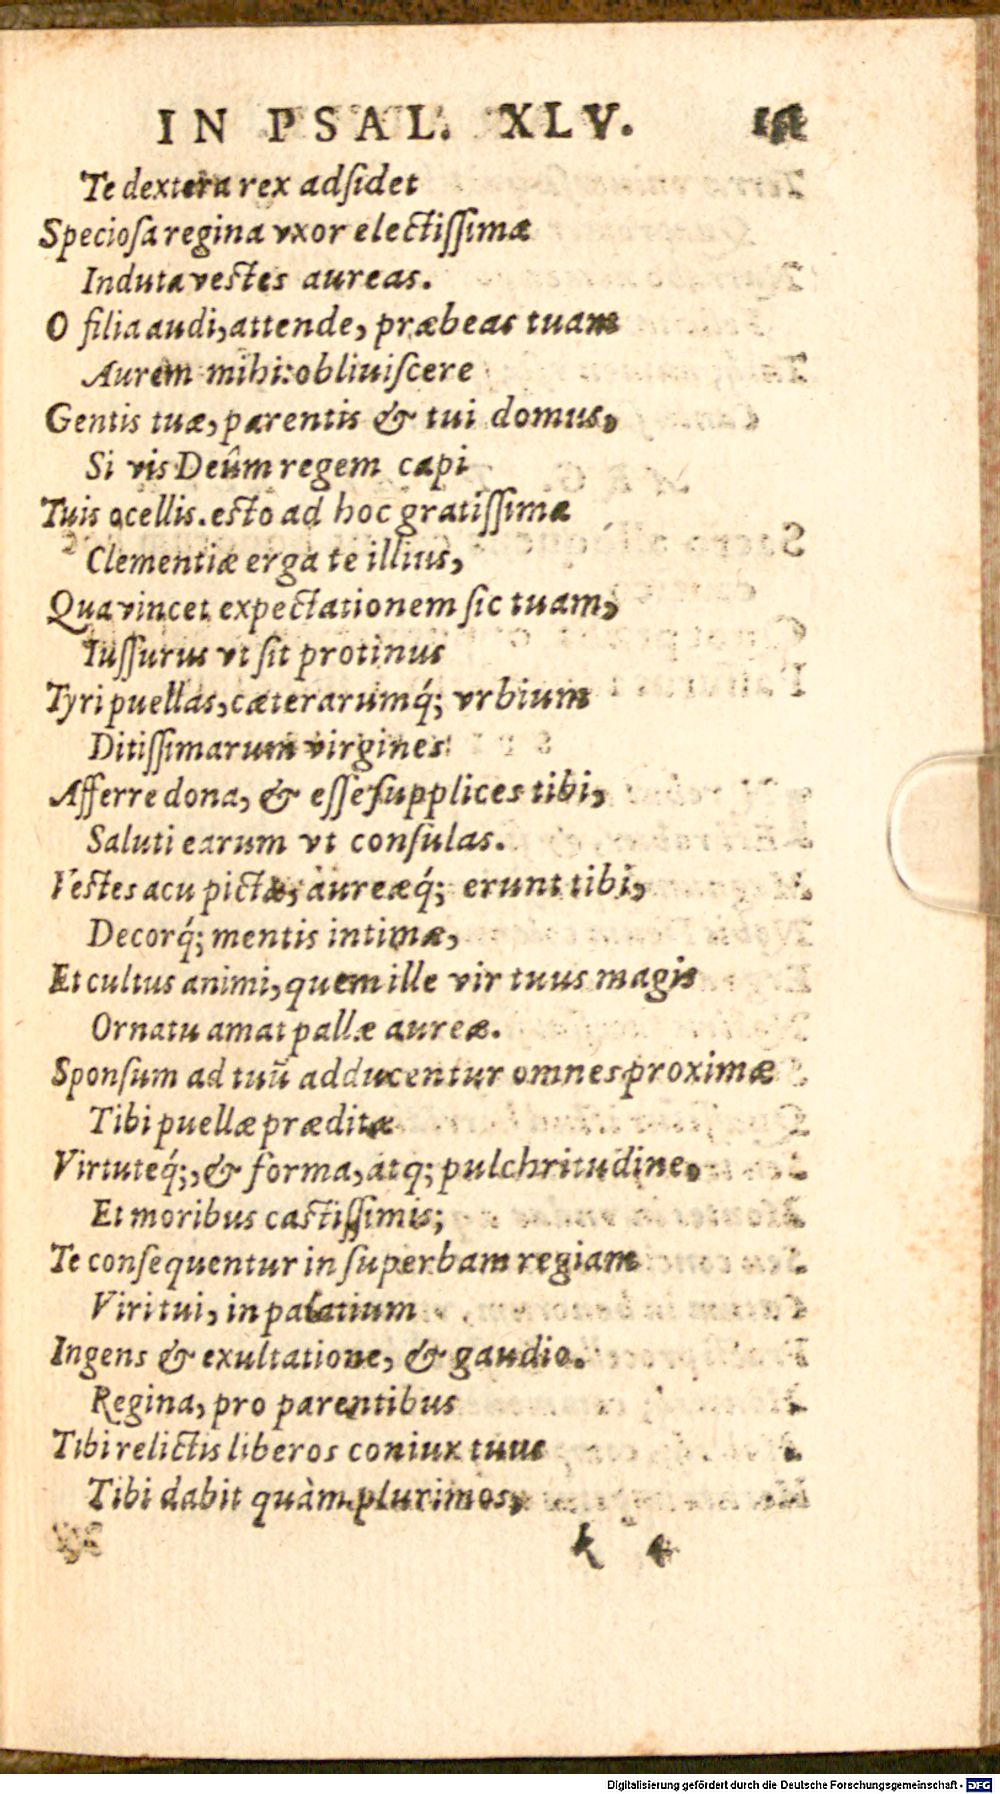 IN PSAL. XLV.
Te dextera rex adsidet
Speciosa regina vxor electissimæ
Induta vestes aureas.
O filia audi, attende, præbeas tuam
Aurem mihi: obliuiscere
Gentis tuæ, parentis & tui domus,
Si vis Deûm regem capi
Tuis ocellis. esto ad hoc gratissimæ
Clementiæ erga te illius,
Qua vincet expectationem sic tuam,
Iussurus vt sit protinus
Tyri puellas, cæterarumq́; vrbium
Ditissimarum virgines
Afferre dona, & esse supplices tibi,
Saluti earum vt consulas.
Vestes acu pictæ, aureæq́; erunt tibi,
Decorq́; mentis intimæ,
Et cultus animi, quem ille vir tuus magis
Ornatu amat pallæ aureæ.
Sponsum ad tuū adducentur omnes proximæ
Tibi puellæ præditæ
Virtuteq́;, & forma, atq; pulchritudine,
Et moribus castissimis;
Te consequentur in superbam regiam
Viri tui, in palatium
Ingens & exultatione, & gaudio.
Regina, pro parentibus
Tibi relictis liberos coniux tuus
Tibi dabit quàm plurimos,
k 4
Digitalisierung gefördert durch die Deutsche Forschungsgemeinschaft - DFG